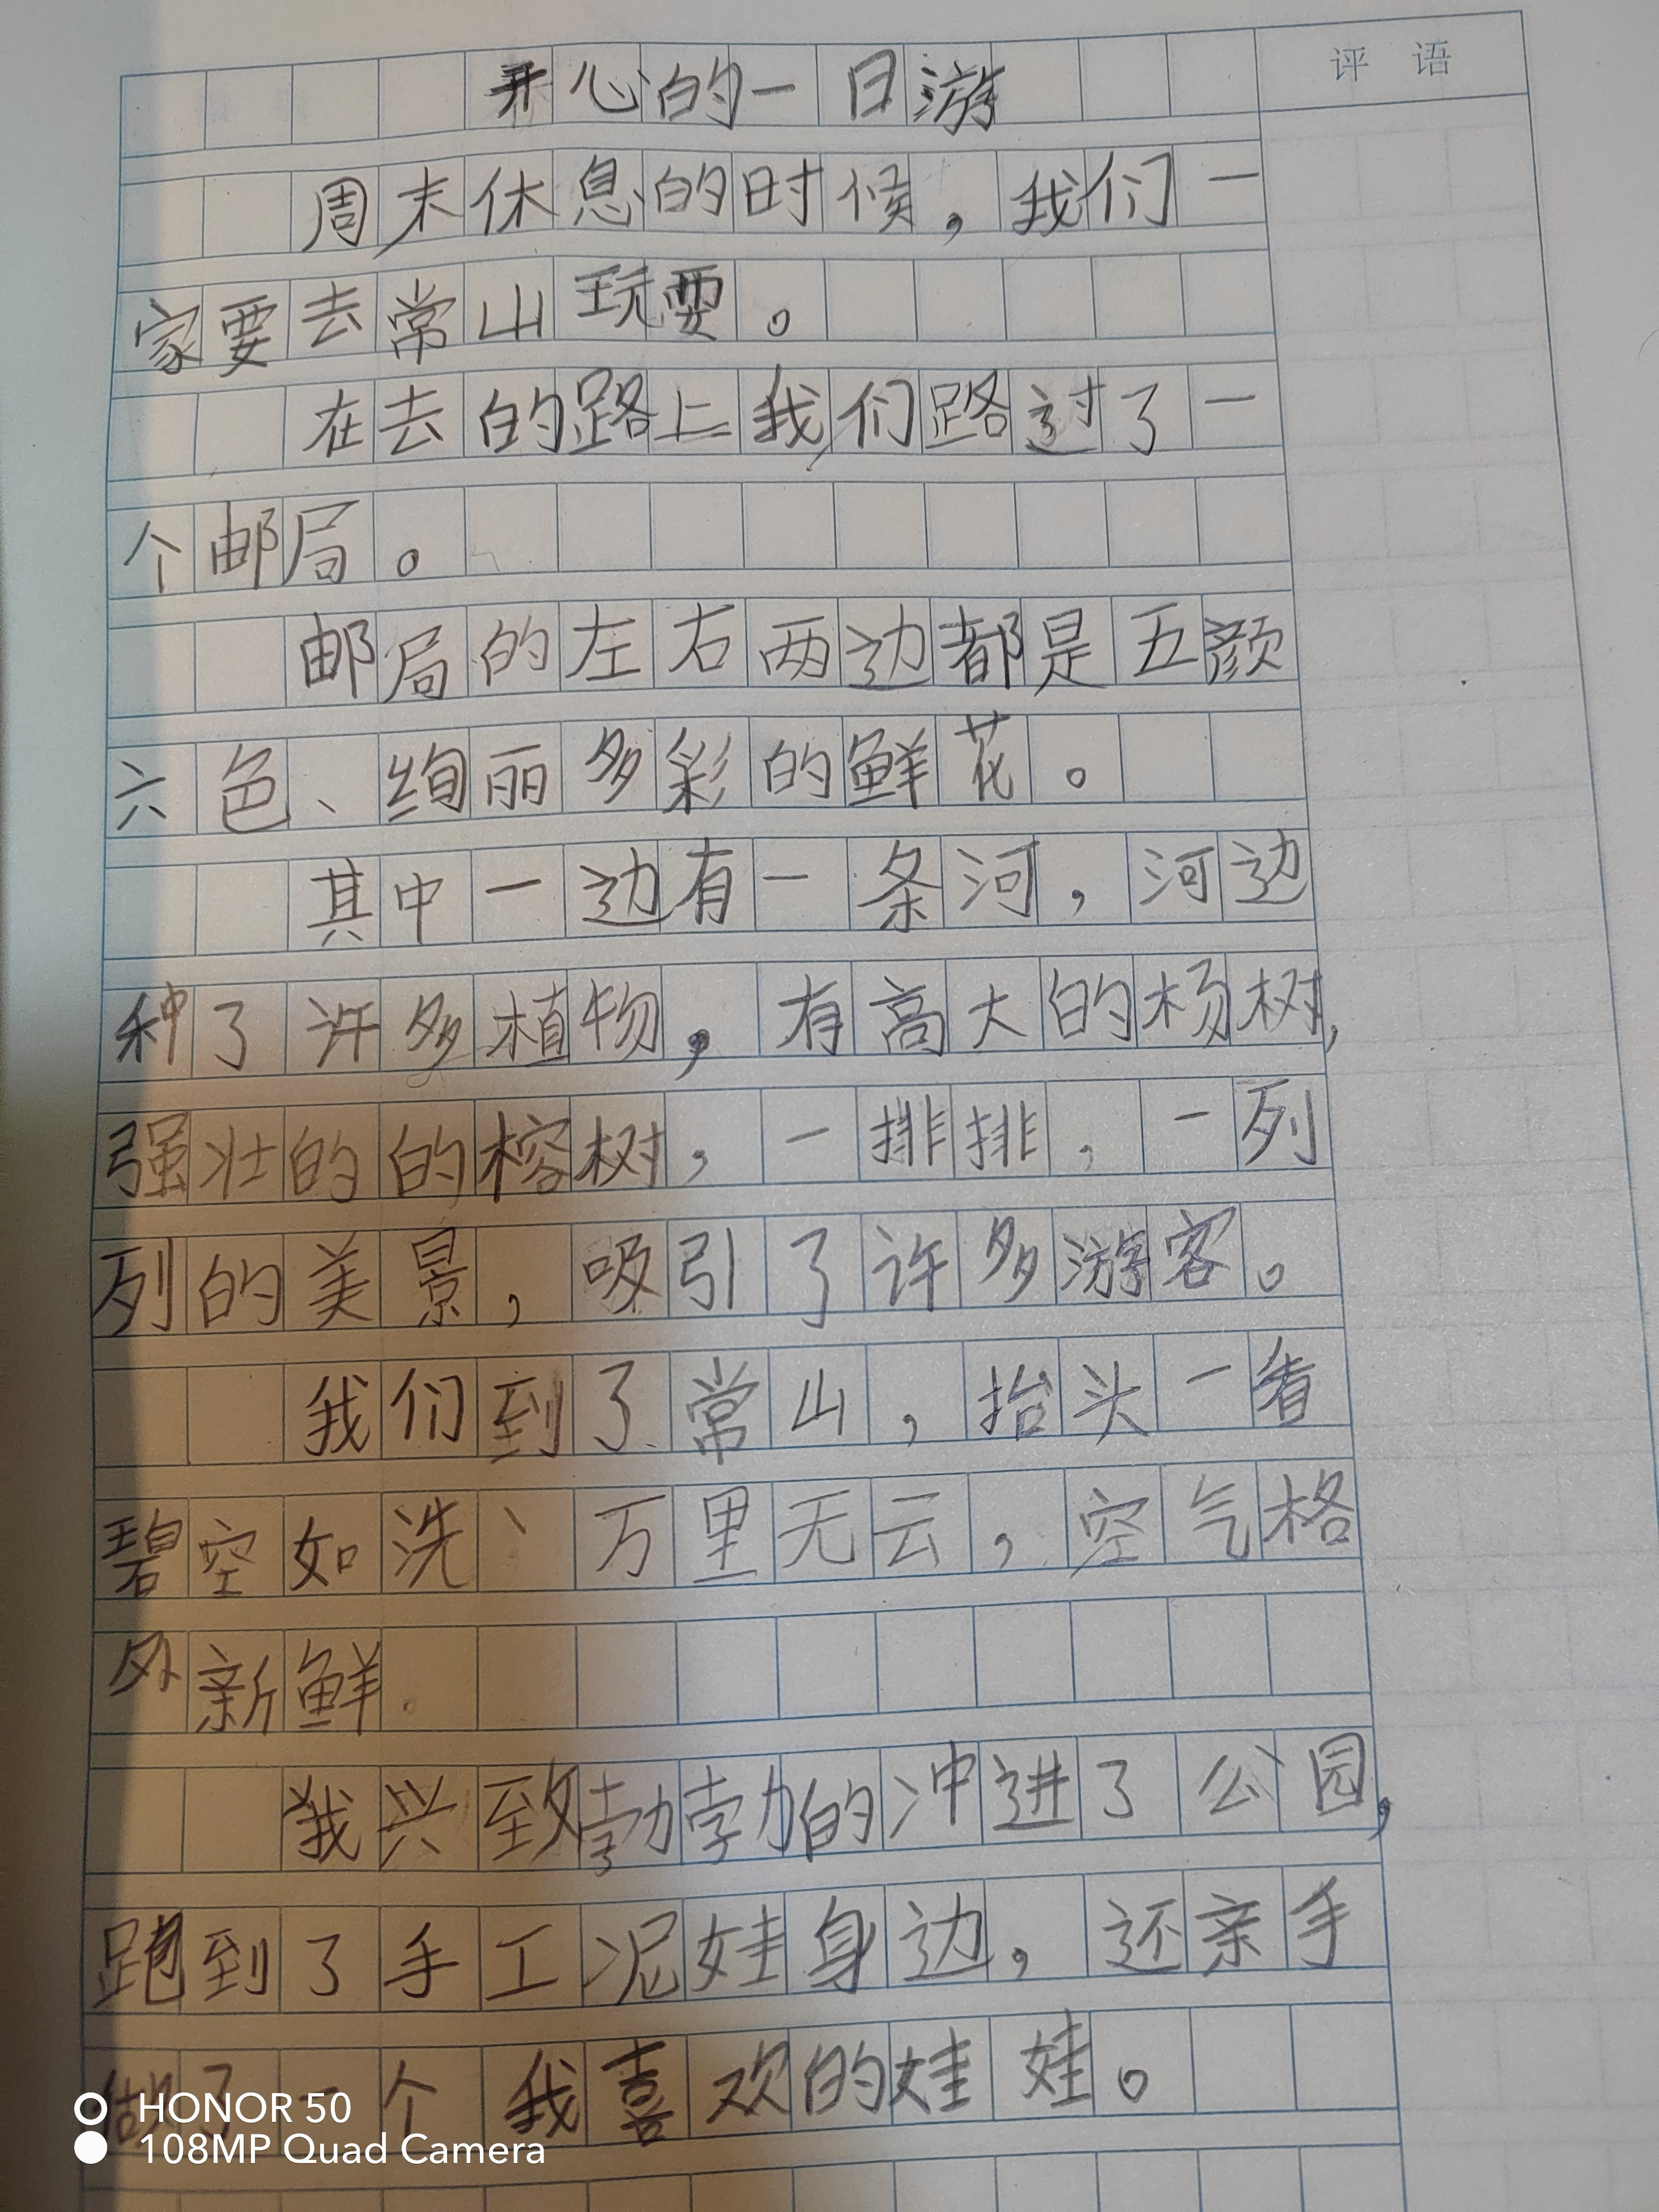 开心的一日游
评 语
周末休息的时候，我们一
家要去常山玩耍。
在去的路上我们路过了一
个邮局。
邮局的左右两边都是五颜
六色、绚丽多彩的鲜花。
其中一边有一条河，河边
种了许多植物，有高大的杨树，
强壮的的榕树，一排排，一列
列的美景，吸引了许多游客。
我们到了常山，抬头一看
碧空如洗、万里无云，空气格
外新鲜。
我兴致勃勃的冲进了公园，
跑到了手工泥娃身边，还亲手
做了一个我喜欢的娃娃。
HONOR 50
108MP Quad Camera